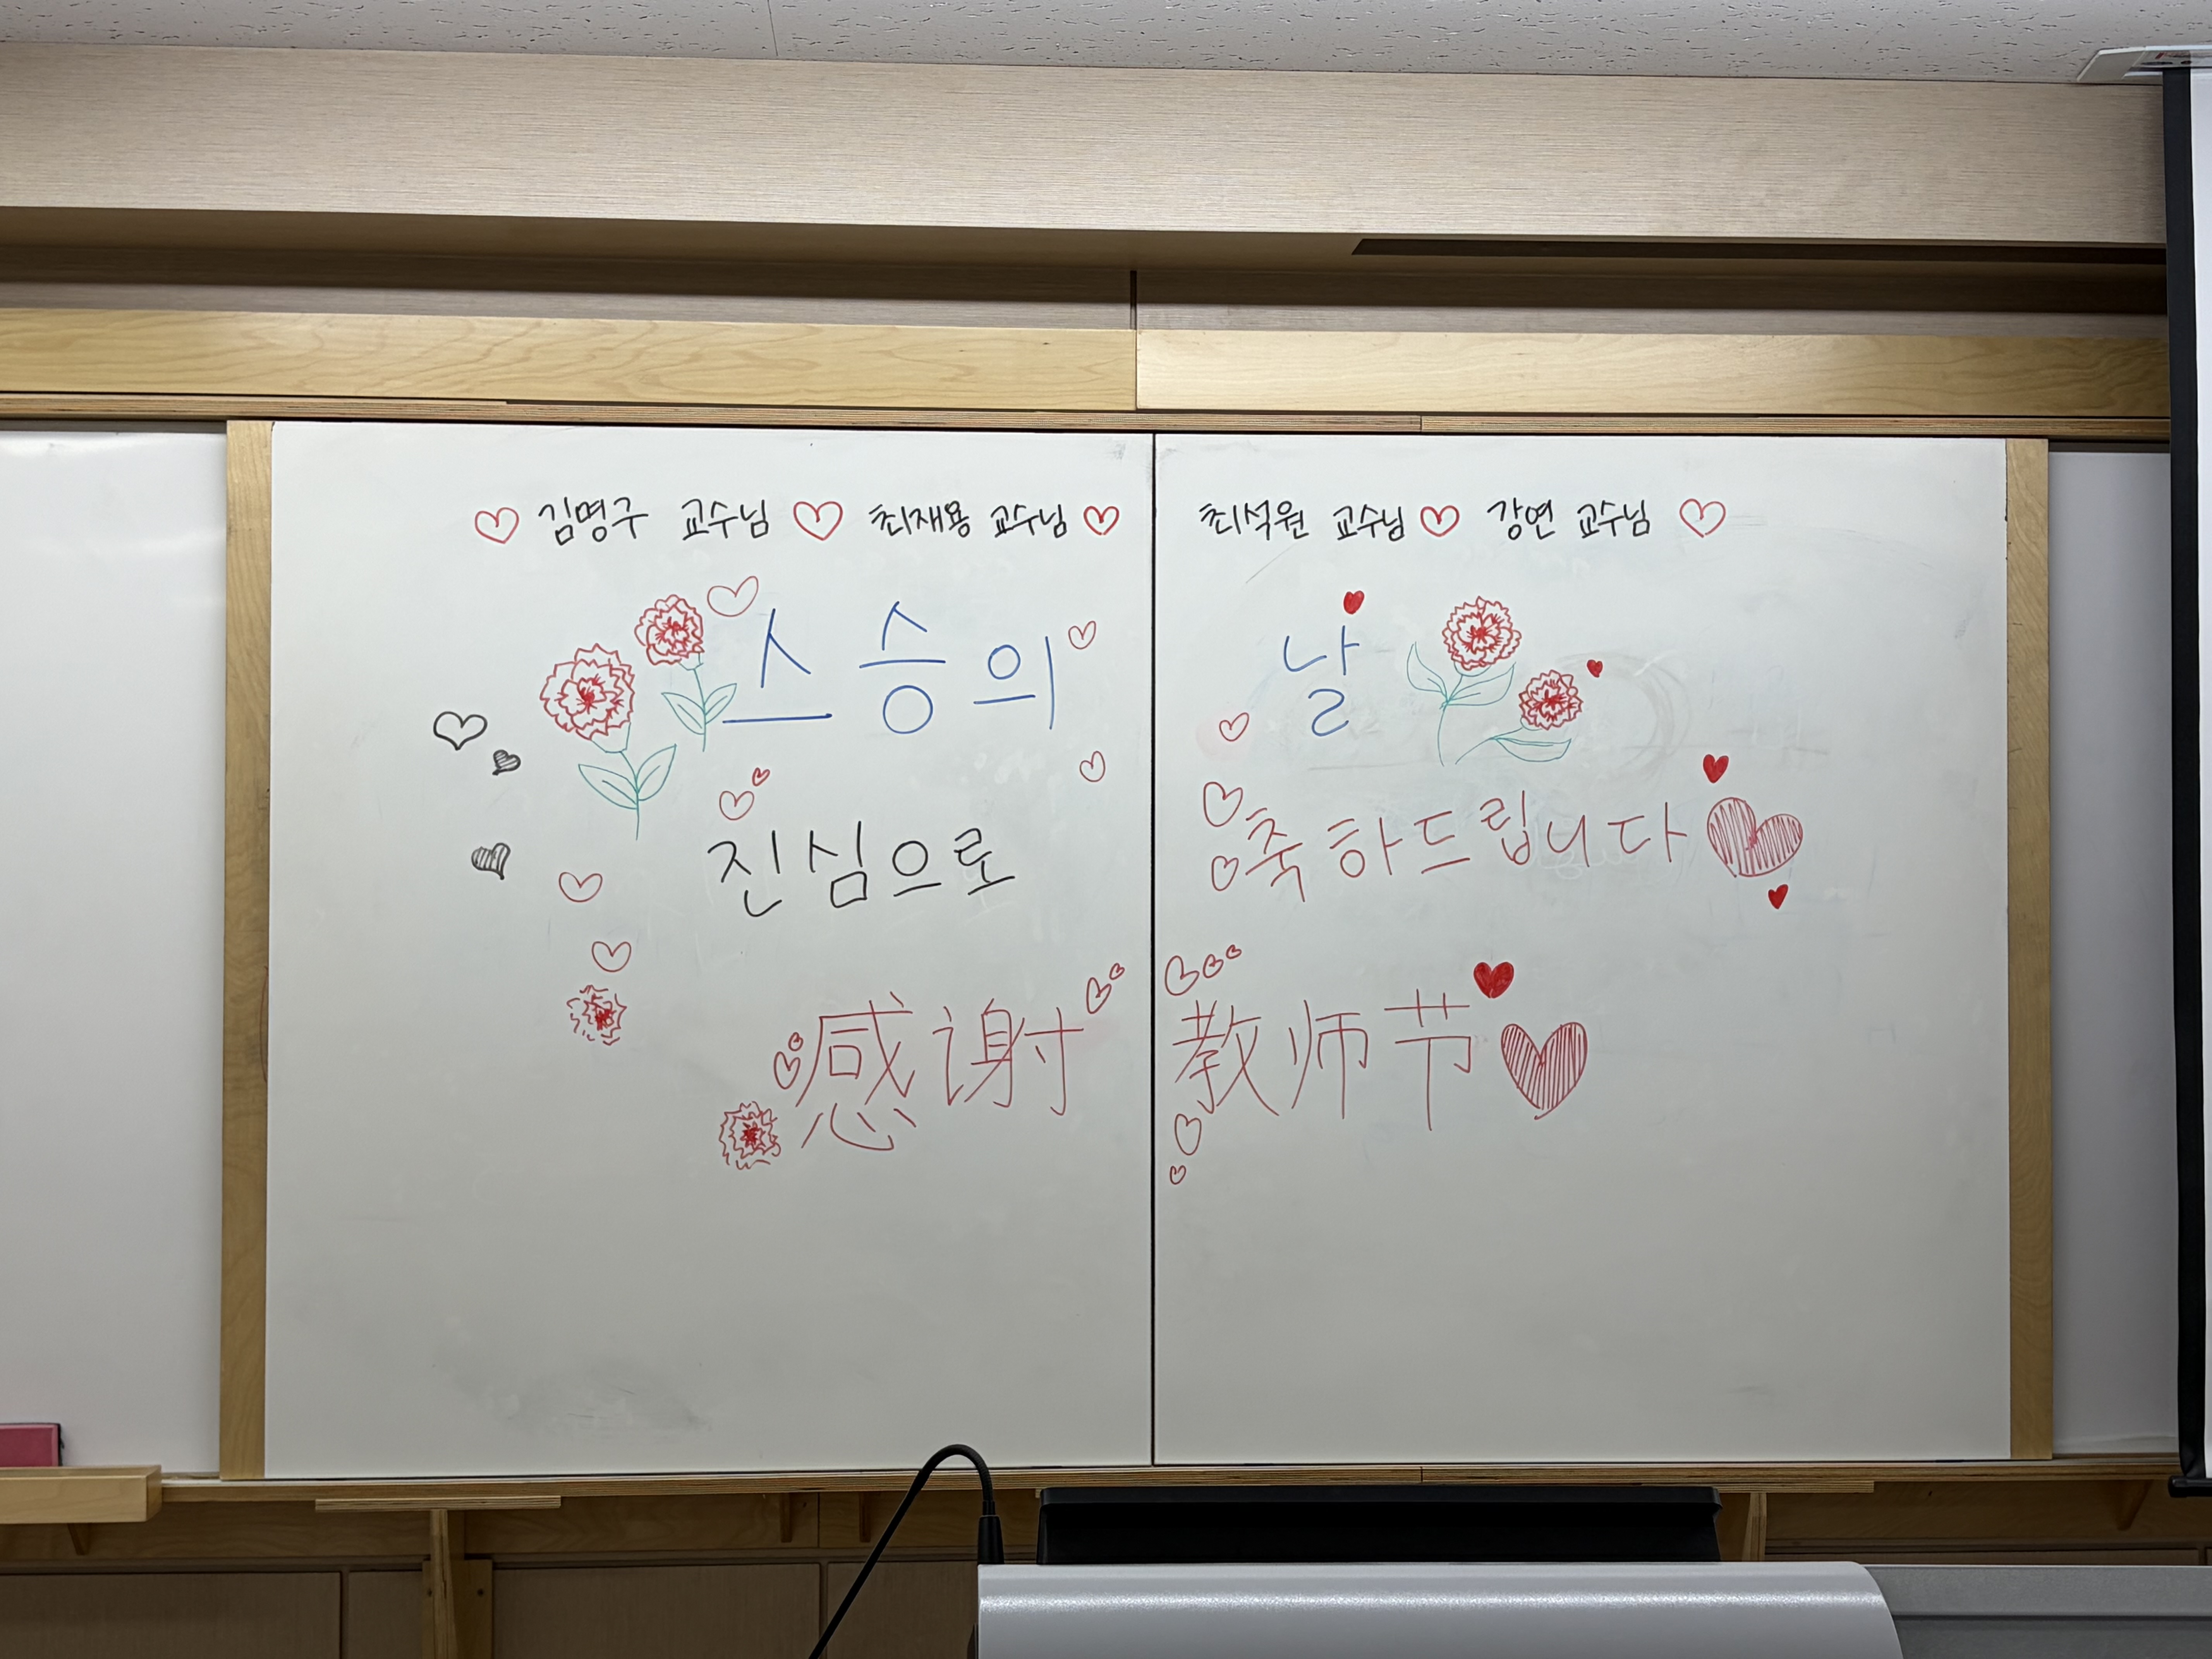 ♡ 김명구 교수님 ♡ 최재용 교수님 ♡ 최석원 교수님 ♡ 강연 교수님 ♡
스승의 날
진심으로 축하드립니다
感谢 教师节